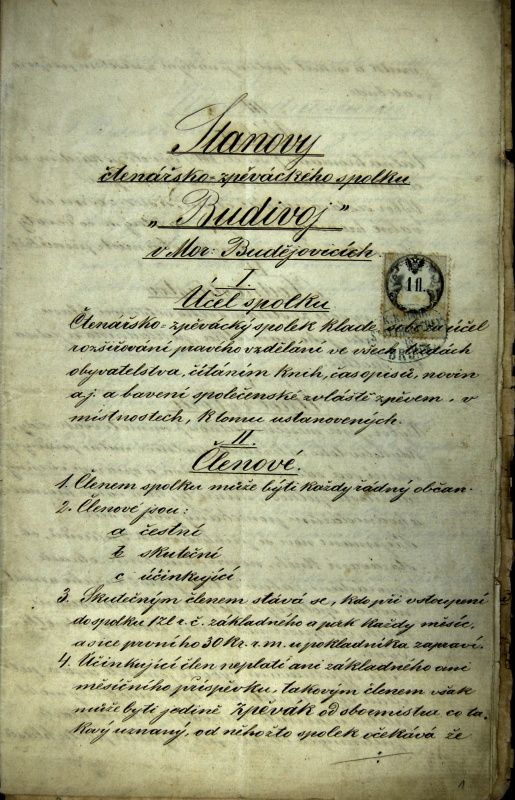 Stanovy
čtenářsko-zpěváckého spolku
„Budivoj"
v Mor: Budějovicích.
I.
Účel spolku
1 fl.
Čtenářsko-zpěvácký spolek klade sobě za účel
rozšiřování pravého vzdělání ve všech
obyvatelstva, čítáním knih, časopisů, novin
a.j. a bavení společenské zvláště zpěvem, v
místnostech, k tomu ustanovených.
II.
Členové.
1. Členem spolku může býti každý řádný občan.
2. Členové jsou:
a čestní
b skuteční
c účinkující
3. Skutečným členem stává se, kdo při vstoupení
do spolku 1 zl r. č. základného a pak každý měsíc,
a sice prvního 30 Kr. r. m. u pokladníka zapraví.
4. Účinkující člen neplatí ani základného ani
měsíčního příspěvku, takovým členem však
může býti jedině Zpěvák od sbormistra co ta-
kový uznaný, od něhožto spolek očekává že
1